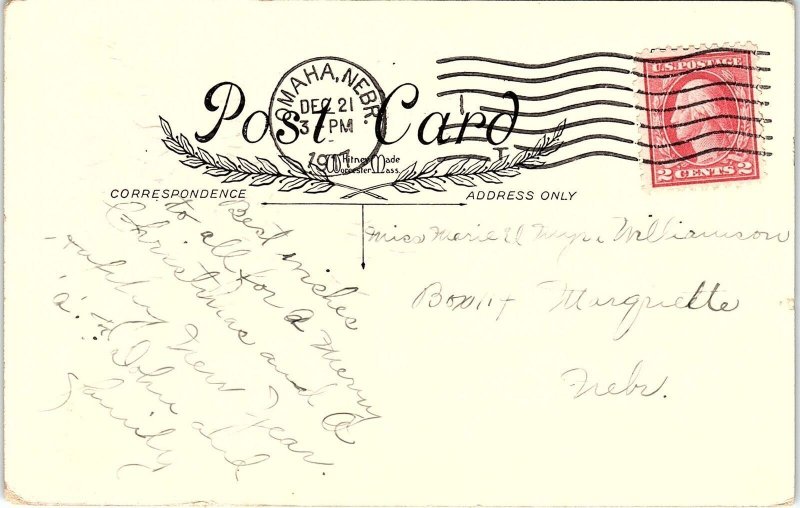 OMAHA, NEBR.
DEC 21
3 PM
U.S. POSTAGE
2 CENTS 2
Post Card
Whitney Made
Worcester Mass.
CORRESPONDENCE
ADDRESS ONLY
Best wishes
to all for a Merry
Christmas and a
Happy New Year.
John and
family
Miss Marie Williamson
Marquette
Nebr.